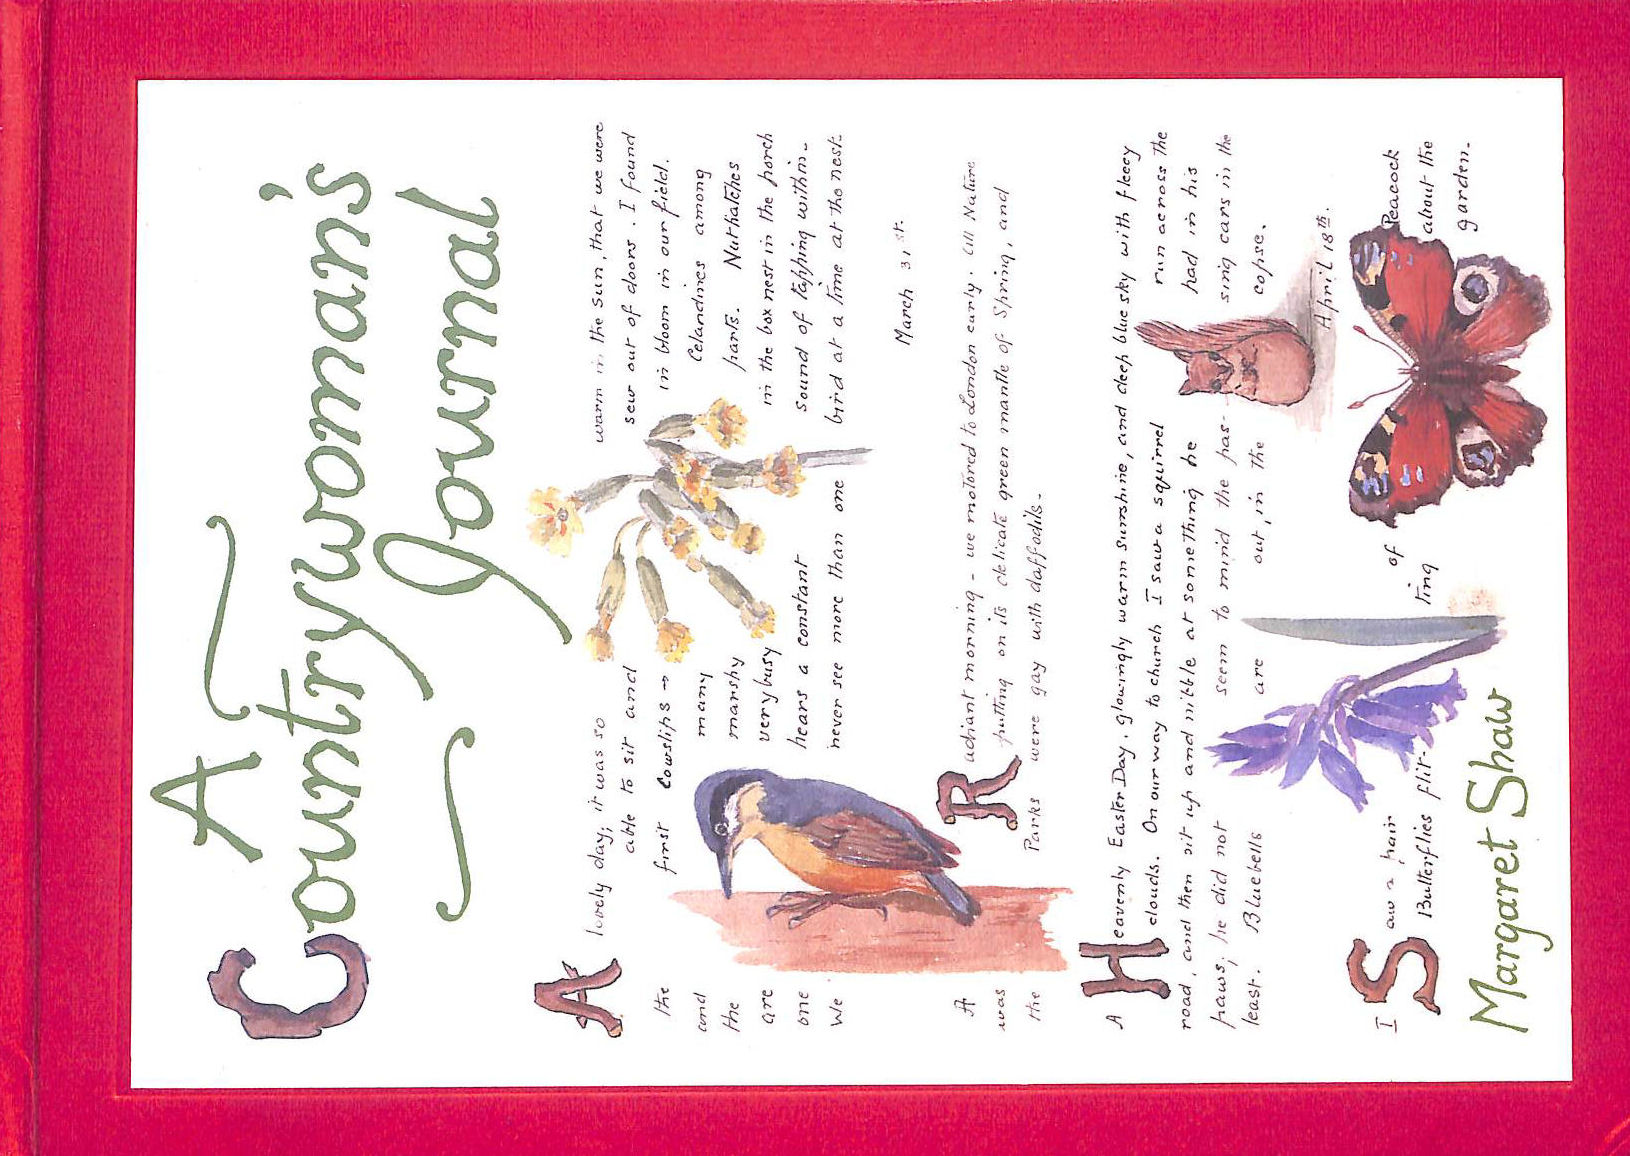 A
Countrywoman's
Journal
A lovely day; it was so warm in the sun, that we were
able to sit and sew out of doors. I found
the first Cowslips → in bloom in our field.
and many Celandines among
the marshy parts. Nuthatches
are very busy in the box nest in the porch
one hears a constant sound of tapping within-
We never see more than one bird at a time at the nest.
March 31st.
A Radiant morning - we motored to London early. All Nature
was putting on its delicate green mantle of Spring, and
the Parks were gay with daffodils.
A Heavenly Easter Day, glowingly warm sunshine, and deep blue sky with fleecy
clouds. On our way to church I saw a squirrel run across the
road, and then sit up and nibble at something he had in his
paws; he did not seem to mind the pas-sing cars in the
least. Bluebells are out, in the copse.
April 18th.
I Saw a pair of Peacock
Butterflies flit-ting about the
garden.
Margaret Shaw